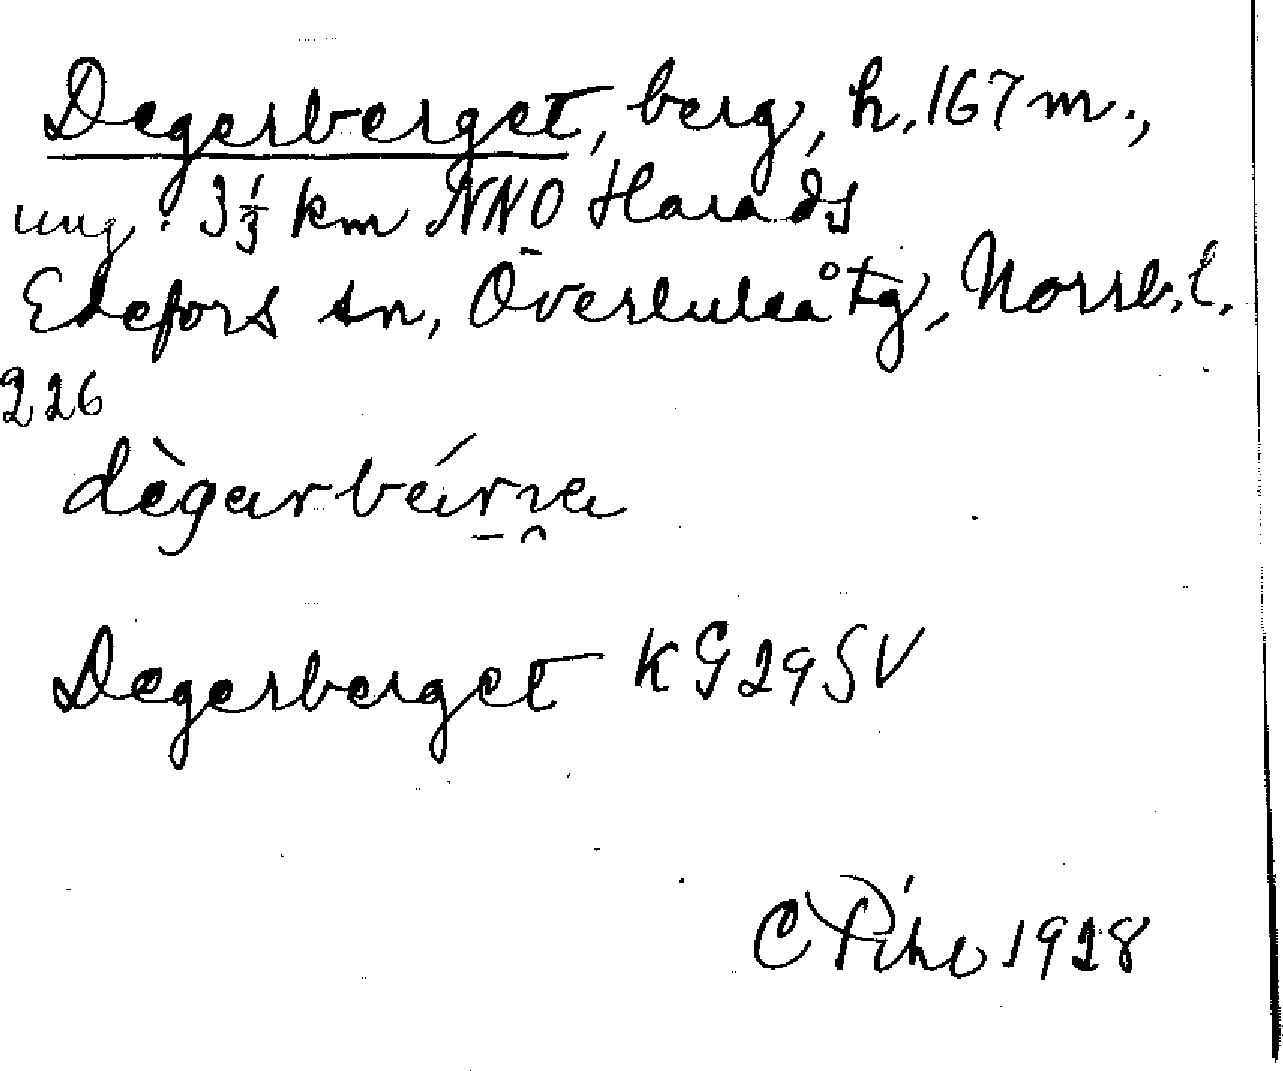 Degerberget, berg, h. 167 m.,
ung. 3 1/3 km NNO Harads
Edefors sn, Överluleå tg, Norrb. l.
226
dègar bárna
Degerberget KG 29 SV
C Pihl 1928